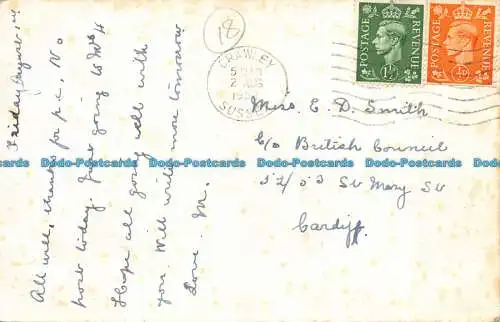 Friday August
All well, thanks for p.c. No
post today. Just going to Mrs H
Hope all going well with
you. Will write more tomorrow
Love. M.
18
CRAWLEY
SUSSEX
AUG
POSTAGE
REVENUE
1½D
POSTAGE
REVENUE
½D
Miss E. D. Smith
C/o British Council
52/53 St Mary St
Cardiff.
Dodo-Postcards Dodo-Postcards Dodo-Postcards Dodo-Postcards Dodo-Postcards
Dodo-Postcards Dodo-Postcards Dodo-Postcards Dodo-Postcards Dodo-Postcards